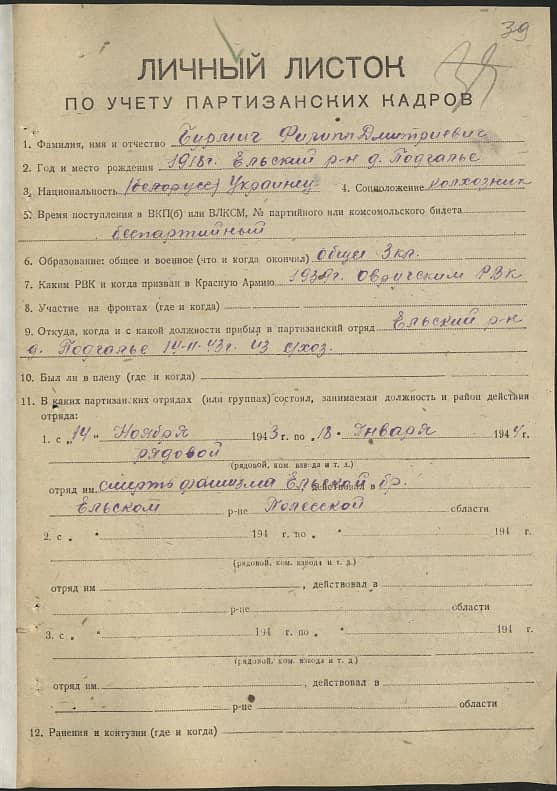 39
ЛИЧНЫЙ ЛИСТОК
ПО УЧЕТУ ПАРТИЗАНСКИХ КАДРОВ
1. Фамилия, имя и отчество Бирмич Филипп Дмитриевич
2. Год и место рождения 1918г. Ельский р-н д. Подгалье
3. Национальность (белорусс) Украинец 4. Соцположение колхозник
5. Время поступления в ВКП(б) или ВЛКСМ, № партийного или комсомольского билета
беспартийный
6. Образование: общее и военное (что и когда окончил) общее 3 кл.
7. Каким РВК и когда призван в Красную Армию 1939г. Овручским РВК
8. Участие на фронтах (где и когда)
9. Откуда, когда и с какой должности прибыл в партизанский отряд Ельский р-н
д. Подгалье 14-11-43г. из с/хоз.
10. Был ли в плену (где и когда)
11. В каких партизанких отрядах (или группах) состоял, занимаемая должность и район действия
отряда:
1. с „14" Ноября 1943г. по „18" Января 1944г.
рядовой
(рядовой, ком. взвода и т. д.)
отряд им. смерть фашизма Ельской бр. действовал в
Ельском р-не Полесской области
2. с „ " 194 г. по „ " 194 г.
(рядовой, ком. взвода и т. д.)
отряд им , действовал в
р-не области
3. с „ " 194 г. по „ " 194 г.
(рядовой, ком. взвода и т. д)
отряд им. , действовал в
р-не области
12. Ранения и контузии (где и когда)